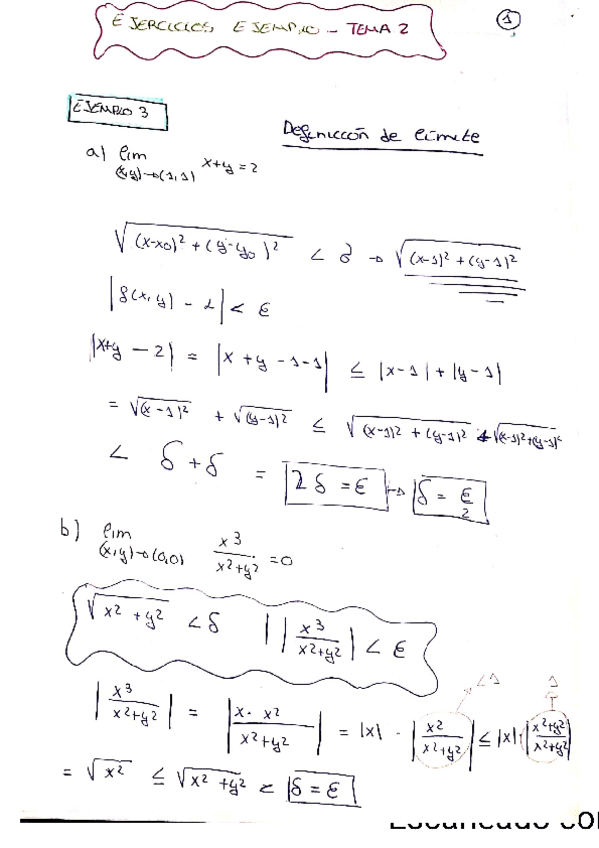 EJERCICIOS EJEMPLO - TEMA 2
1
EJEMPLO 3
Definicción de límite
a) lim (x,y)→(1,1) x+y=2
√((x-x0)² + (y-y0)²) < δ → √((x-1)² + (y-1)²)
|f(x,y) - L| < ε
|x+y - 2| = |x + y - 1 - 1| ≤ |x-1| + |y-1|
= √(x-1)² + √(y-1)² ≤ √((x-1)² + (y-1)²) + √((x-1)²+(y-1)²)
< δ + δ = 2δ = ε → δ = ε/2
b) lim (x,y)→(0,0) x³/(x²+y²) = 0
√(x² + y²) < δ | |x³/(x²+y²)| < ε
<1 1
|x³/(x²+y²)| = |x · x²/(x²+y²)| = |x| · |x²/(x²+y²)| ≤ |x| · |(x²+y²)/(x²+y²)|
= √x² ≤ √(x² + y²) < δ = ε